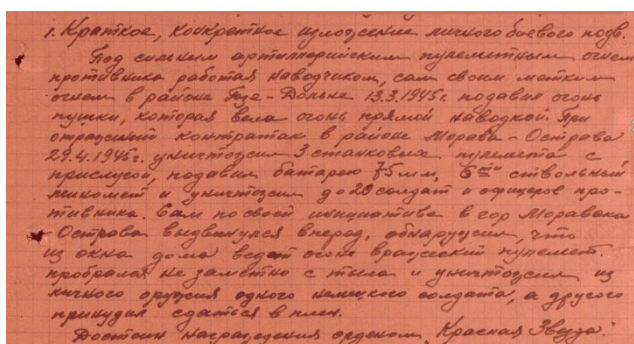 1. Краткое, конкретное изложение личного боевого подв.
Под сильным артиллерийским пулеметным огнем
противника работая наводчиком, сам своим метким
огнем в районе Гзе-Дольне 13.3.1945г. подавил огонь
пушки, которая вела огонь прямой наводкой. При
отражении контратак в районе Морава-Острава
29.4.1945г. уничтожил 3 станковых пулемета с
прислугой, подавил батарею 75мм, 6ти ствольный
миномет и уничтожил до 20 солдат и офицеров про-
тивника. Сам по своей инициативе в гор Моравска
Острава выдвинулся вперед, обнаружил, что
из окна дома ведет огонь вражеский пулемет.
пробрался не заметно с тыла и уничтожил из
личного оружия одного немецкого солдата, а другого
принудил сдаться в плен.
Достоин награждения орденом „Красная Звезда".